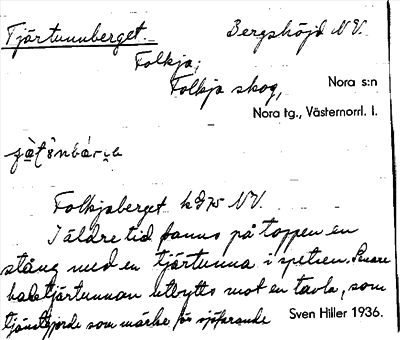 Tjärtunnberget. Bergshöjd N.V.
Folkja,
Folkja skog, Nora s:n
Nora tg., Västernorrl. l.
Folkjaberget kg 75 NV.
I äldre tid fanns på toppen en
stång med en tjärtunna i spetsen. Senare
had tjärtunnan utbytts mot en tavla, som
tjänstgjorde som märke för sjöfarande Sven Hiller 1936.